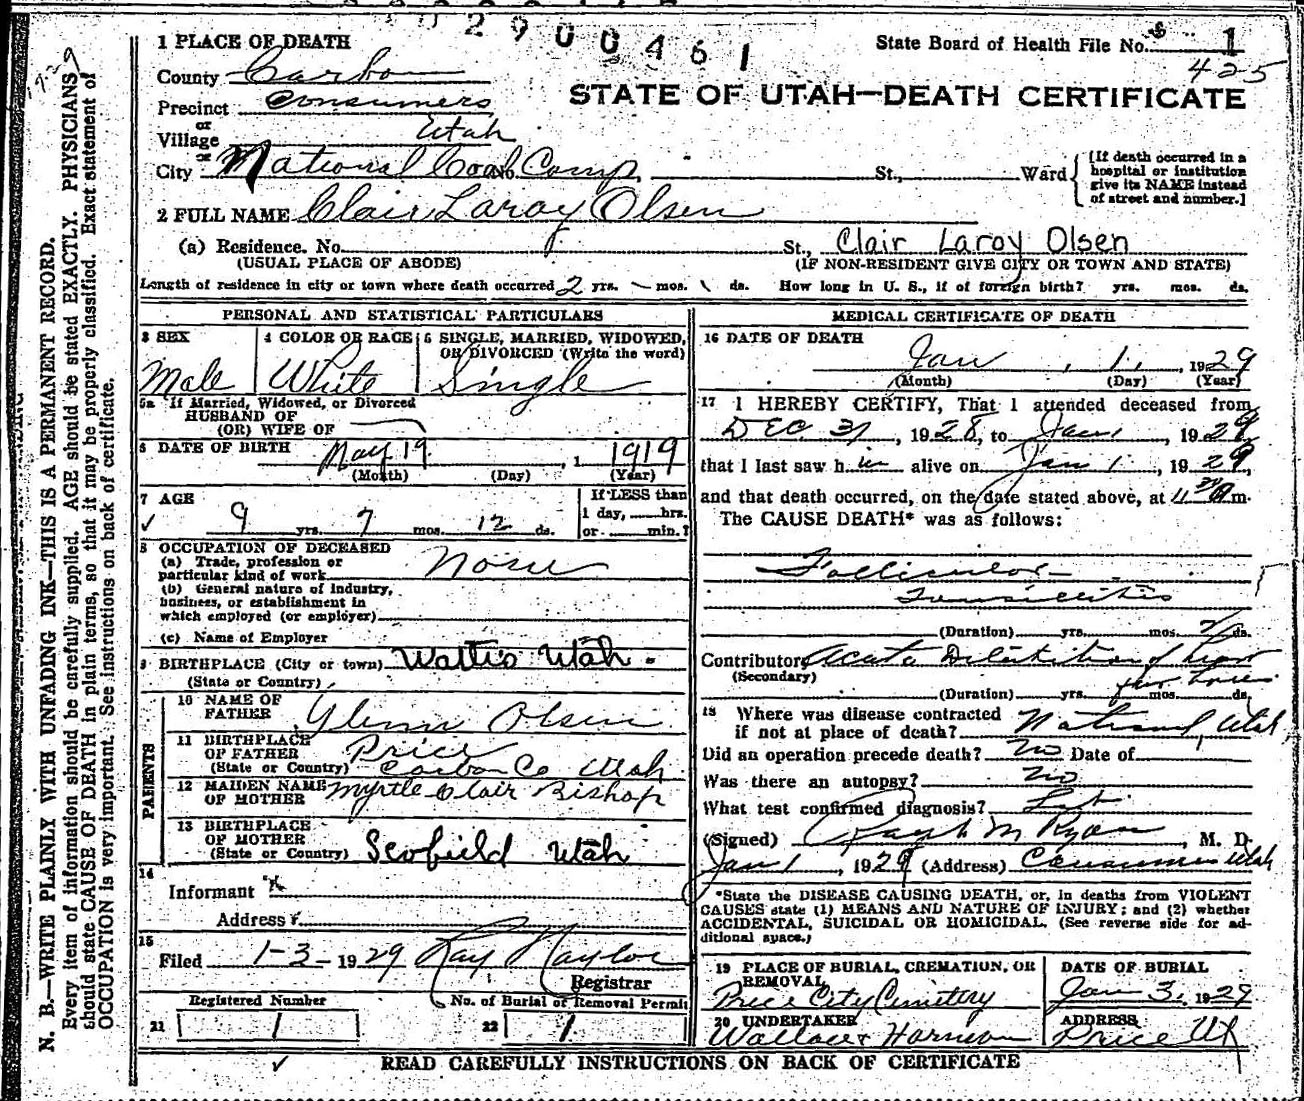 02900461
1 PLACE OF DEATH
State Board of Health File No. 1
425
County Carbon
STATE OF UTAH—DEATH CERTIFICATE
Precinct Consumers
or
Village Utah
or
City National Coal Camp. No. St., Ward
[If death occurred in a hospital or institution give its NAME instead of street and number.]
2 FULL NAME Clair Laroy Olsen
(a) Residence. No. St., Clair Laroy Olsen
(USUAL PLACE OF ABODE) (IF NON-RESIDENT GIVE CITY OR TOWN AND STATE)
Length of residence in city or town where death occurred 2 yrs. mos. ds. How long in U. S., if of foreign birth? yrs. mos. ds.
PERSONAL AND STATISTICAL PARTICULARS
3 SEX
Male
4 COLOR OR RACE
White
5 SINGLE, MARRIED, WIDOWED, OR DIVORCED (Write the word)
Single
5a If Married, Widowed, or Divorced
HUSBAND OF
(OR) WIFE OF
6 DATE OF BIRTH May 19, 1919
(Month) (Day) (Year)
7 AGE
9 yrs. 7 mos. 12 ds.
If LESS than
1 day, hrs.
or min.?
8 OCCUPATION OF DECEASED
(a) Trade, profession or
particular kind of work None
(b) General nature of industry,
business, or establishment in
which employed (or employer)
(c) Name of Employer
9 BIRTHPLACE (City or town) Wattis Utah.
(State or Country)
PARENTS
10 NAME OF
FATHER Glenn Olsen
11 BIRTHPLACE
OF FATHER Price
(State or Country) Carbon Co Utah
12 MAIDEN NAME
OF MOTHER Myrtle Clair Bishop
13 BIRTHPLACE
OF MOTHER
(State or Country) Scofield Utah
14
Informant
Address
15
Filed 1-3-1929 Ray Naylor
Registrar
Registered Number
21 1
No. of Burial or Removal Permit
22 1
MEDICAL CERTIFICATE OF DEATH
16 DATE OF DEATH
Jan 1, 1929
(Month) (Day) (Year)
17 I HEREBY CERTIFY, That I attended deceased from
DEC 31, 1928, to Jan 1, 1929
that I last saw him alive on Jan 1, 1929,
and that death occurred, on the date stated above, at 11 m.
The CAUSE DEATH* was as follows:
Follicular
Tonsillitis
(Duration) yrs. mos. ds.
Contributory Acute Dilatation of
(Secondary)
few hours
(Duration) yrs. mos. ds.
18 Where was disease contracted
if not at place of death? National, Utah
Did an operation precede death? no Date of
Was there an autopsy? no
What test confirmed diagnosis?
(Signed) Ralph M Ryan, M. D.
Jan 1, 1929 (Address) Consumers Utah
*State the DISEASE CAUSING DEATH, or, in deaths from VIOLENT
CAUSES state (1) MEANS AND NATURE OF INJURY; and (2) whether
ACCIDENTAL, SUICIDAL OR HOMICIDAL. (See reverse side for ad-
ditional space.)
19 PLACE OF BURIAL, CREMATION, OR
REMOVAL
Price City Cemetery
DATE OF BURIAL
Jan 3, 1929
20 UNDERTAKER
Wallace & Harmon
ADDRESS
Price Ut
READ CAREFULLY INSTRUCTIONS ON BACK OF CERTIFICATE
N. B.—WRITE PLAINLY WITH UNFADING INK—THIS IS A PERMANENT RECORD.
Every item of information should be carefully supplied. AGE should be stated EXACTLY. PHYSICIANS
should state CAUSE OF DEATH in plain terms, so that it may be properly classified. Exact statement of
OCCUPATION is very important. See instructions on back of certificate.
1929